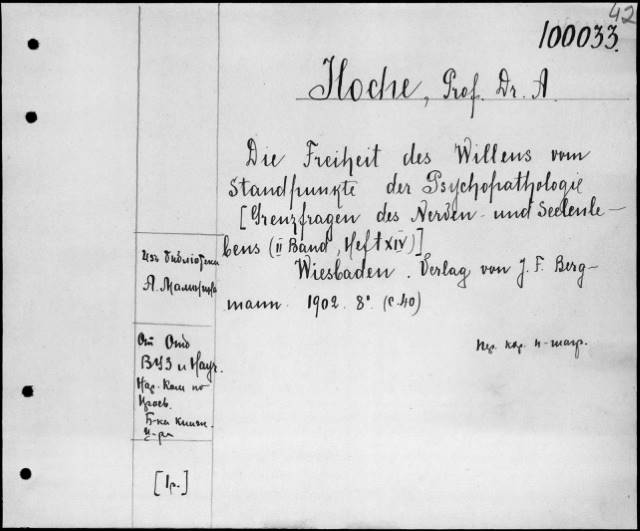 42
100033.
Hoche, Prof. Dr. A.
Die Freiheit des Willens vom
Standpunkte der Psychopathologie
[Grenzfragen des Nerven- und Seelenle-
bens (II Band, Heft XIV)]
Wiesbaden. Verlag von J. F. Berg-
mann. 1902. 8°. (с. 40)
Изъ библіотеки
От Отд
ВУЗ и Науч.
Нар. Ком по
Просв.
Б-ка книжн.
[1р.]